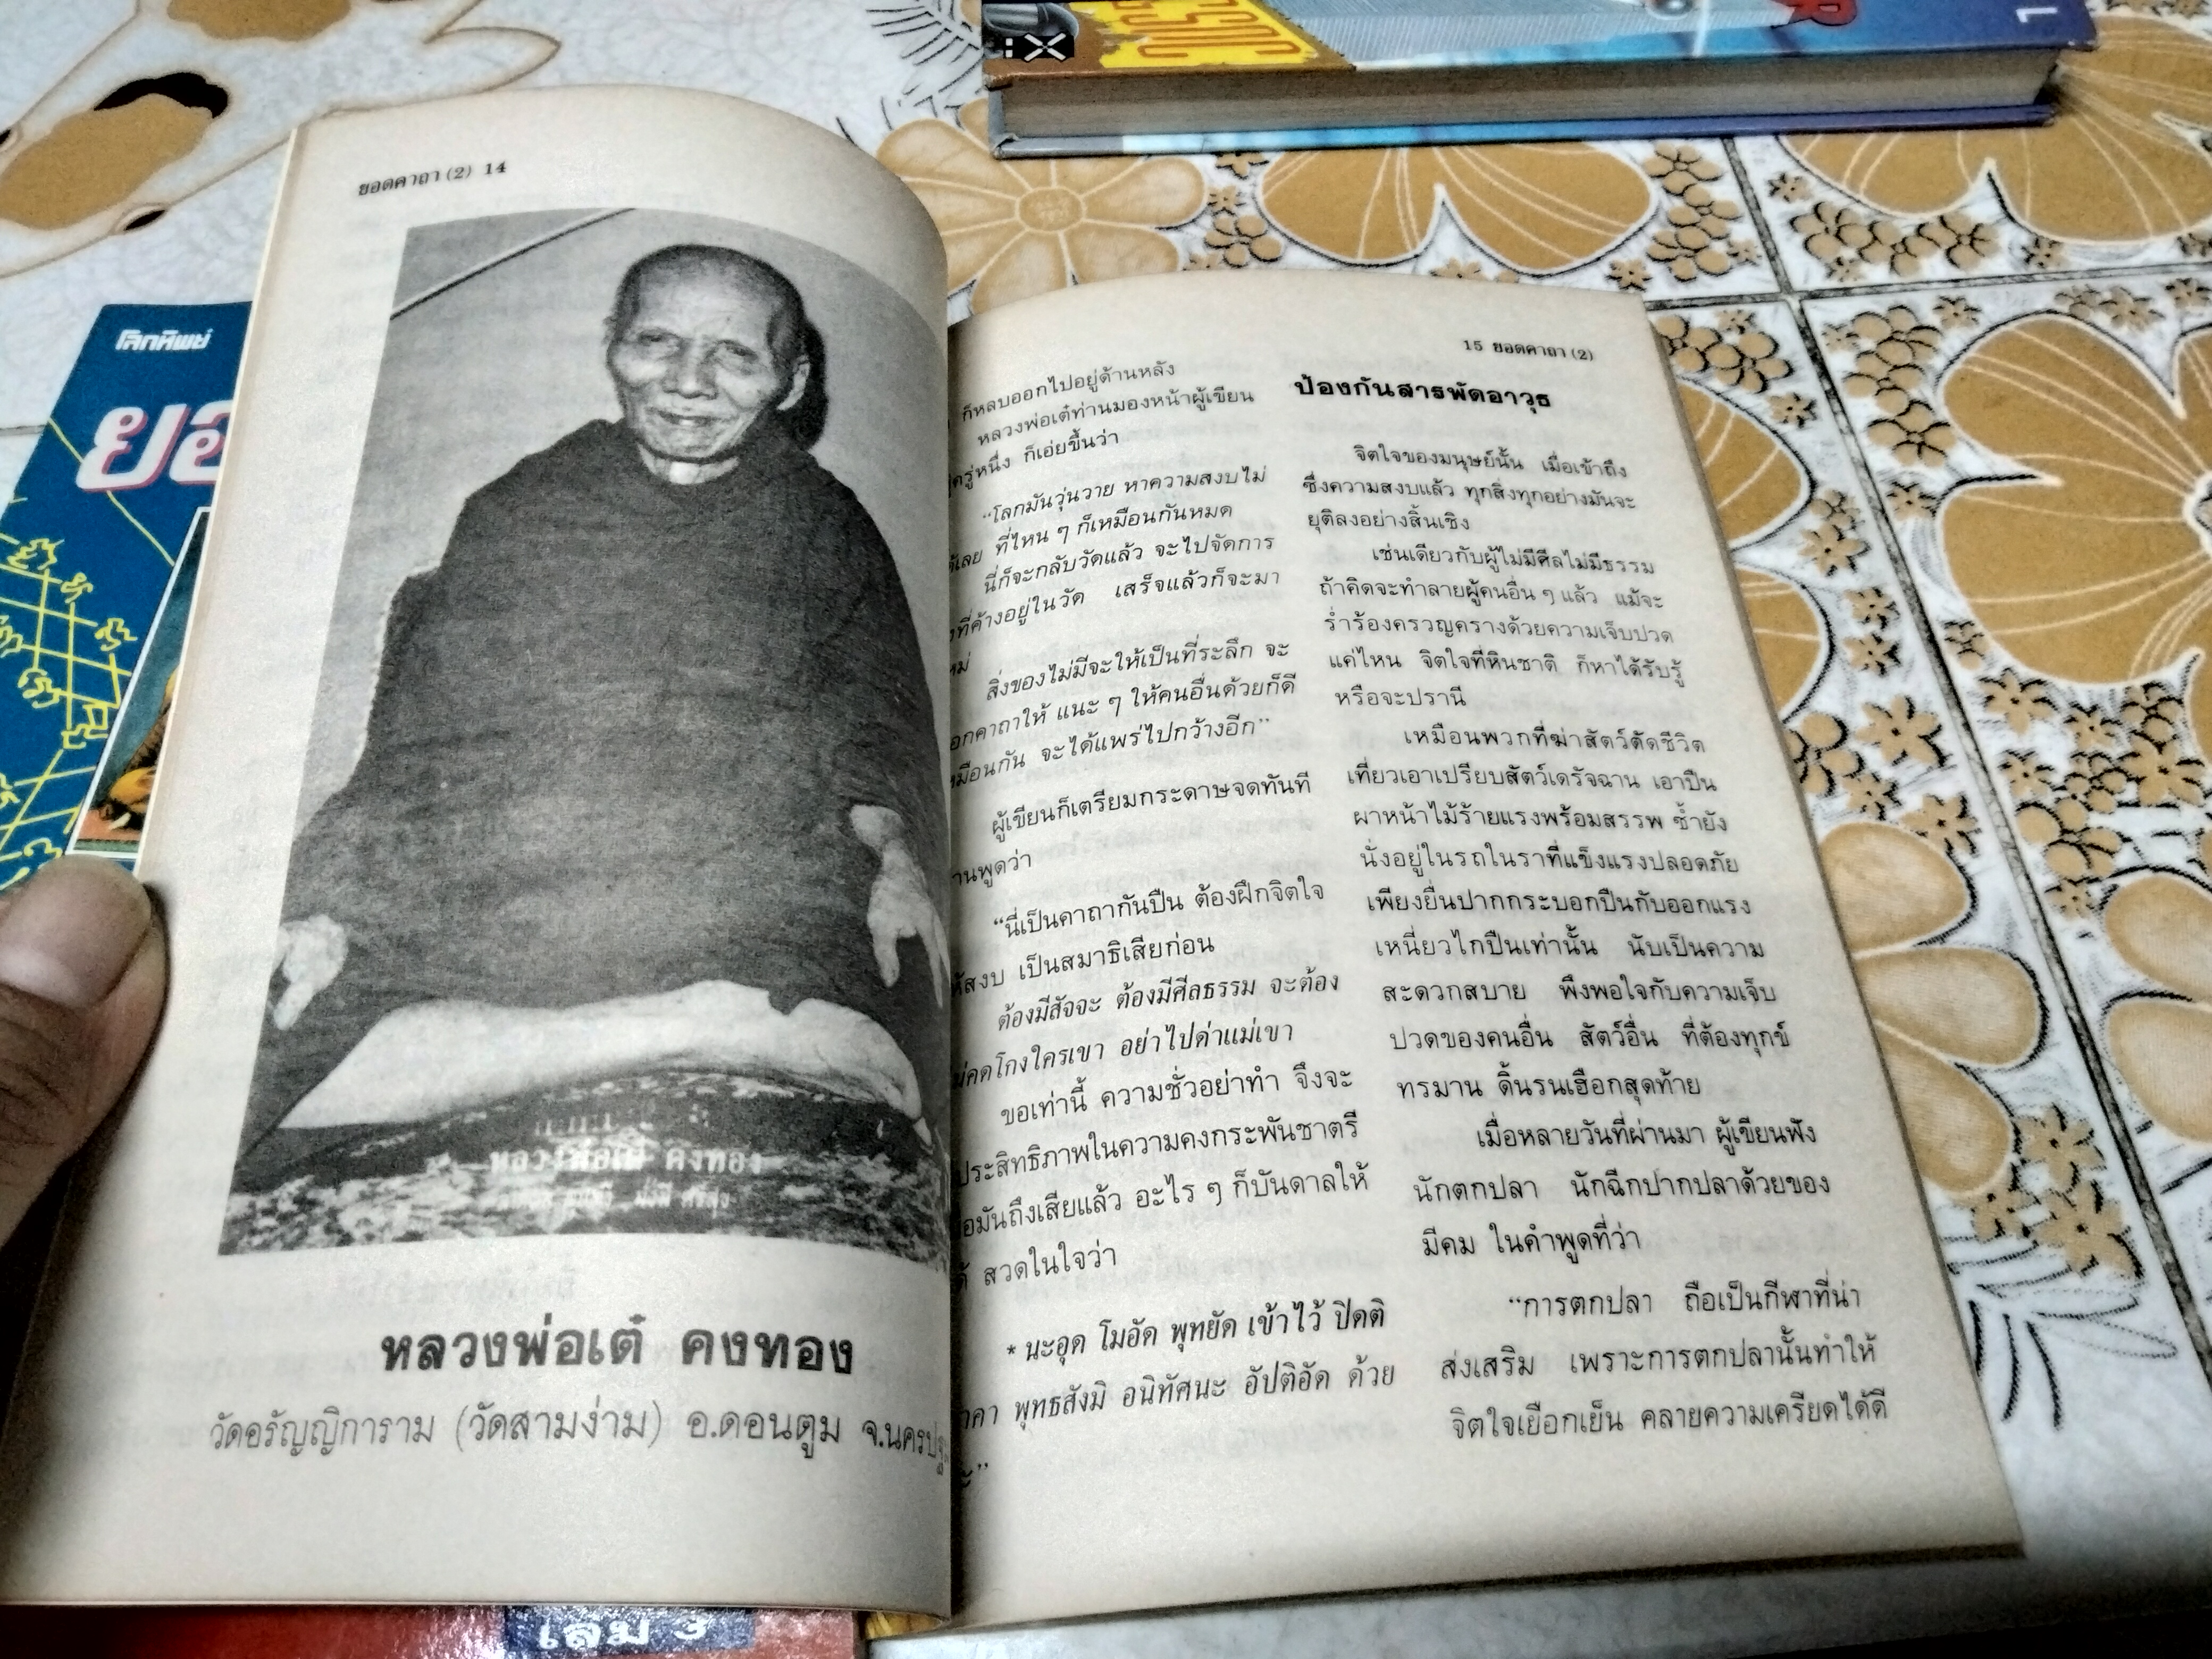 ยอดคาถา (2) 14
หลวงพ่อเต๋ คงทอง
หลวงพ่อเต๋ คงทอง
วัดอรัญญิการาม (วัดสามง่าม) อ.ดอนตูม
15 ยอดคาถา (2)
ก็หลบออกไปอยู่ด้านหลัง
หลวงพ่อเต๋ท่านมองหน้าผู้เขียน
ก็เอ่ยขึ้นว่า
“โลกมันวุ่นวาย หาความสงบไม่
ที่ไหน ๆ ก็เหมือนกันหมด
นี่ก็จะกลับวัดแล้ว จะไปจัดการ
ที่ค้างอยู่ในวัด เสร็จแล้วก็จะมา
สิ่งของไม่มีจะให้เป็นที่ระลึก จะ
แนะ ๆ ให้คนอื่นด้วยก็ดี
จะได้แพร่ไปกว้างอีก”
ผู้เขียนก็เตรียมกระดาษจดทันที
“นี่เป็นคาถากันปืน ต้องฝึกจิตใจ
เป็นสมาธิเสียก่อน
ต้องมีสัจจะ ต้องมีศีลธรรม จะต้อง
อย่าไปด่าแม่เขา
ขอเท่านี้ ความชั่วอย่าทำ จึงจะ
ประสิทธิภาพในความคงกระพันชาตรี
อะไร ๆ ก็บันดาลให้
สวดในใจว่า
* นะอุด โมอัด พุทยัด เข้าไว้ ปิดติ
พุทธสังมิ อนิทัศนะ อัปติอัด ด้วย
ป้องกันสารพัดอาวุธ
จิตใจของมนุษย์นั้น เมื่อเข้าถึง
ซึ่งความสงบแล้ว ทุกสิ่งทุกอย่างมันจะ
ยุติลงอย่างสิ้นเชิง
เช่นเดียวกับผู้ไม่มีศีลไม่มีธรรม
ถ้าคิดจะทำลายผู้คนอื่น ๆ แล้ว แม้จะ
ร่ำร้องครวญครางด้วยความเจ็บปวด
แค่ไหน จิตใจที่หินชาติ ก็หาได้รับรู้
หรือจะปรานี
เหมือนพวกที่ฆ่าสัตว์ตัดชีวิต
เที่ยวเอาเปรียบสัตว์เดรัจฉาน เอาปืน
ผาหน้าไม้ร้ายแรงพร้อมสรรพ ซ้ำยัง
นั่งอยู่ในรถในราที่แข็งแรงปลอดภัย
เพียงยื่นปากกระบอกปืนกับออกแรง
เหนี่ยวไกปืนเท่านั้น นับเป็นความ
สะดวกสบาย พึงพอใจกับความเจ็บ
ปวดของคนอื่น สัตว์อื่น ที่ต้องทุกข์
ทรมาน ดิ้นรนเฮือกสุดท้าย
เมื่อหลายวันที่ผ่านมา ผู้เขียนฟัง
นักตกปลา นักฉีกปากปลาด้วยของ
มีคม ในคำพูดที่ว่า
“การตกปลา ถือเป็นกีฬาที่น่า
ส่งเสริม เพราะการตกปลานั้นทำให้
จิตใจเยือกเย็น คลายความเครียดได้ดี
โลกทิพย์
เล่ม 3
1